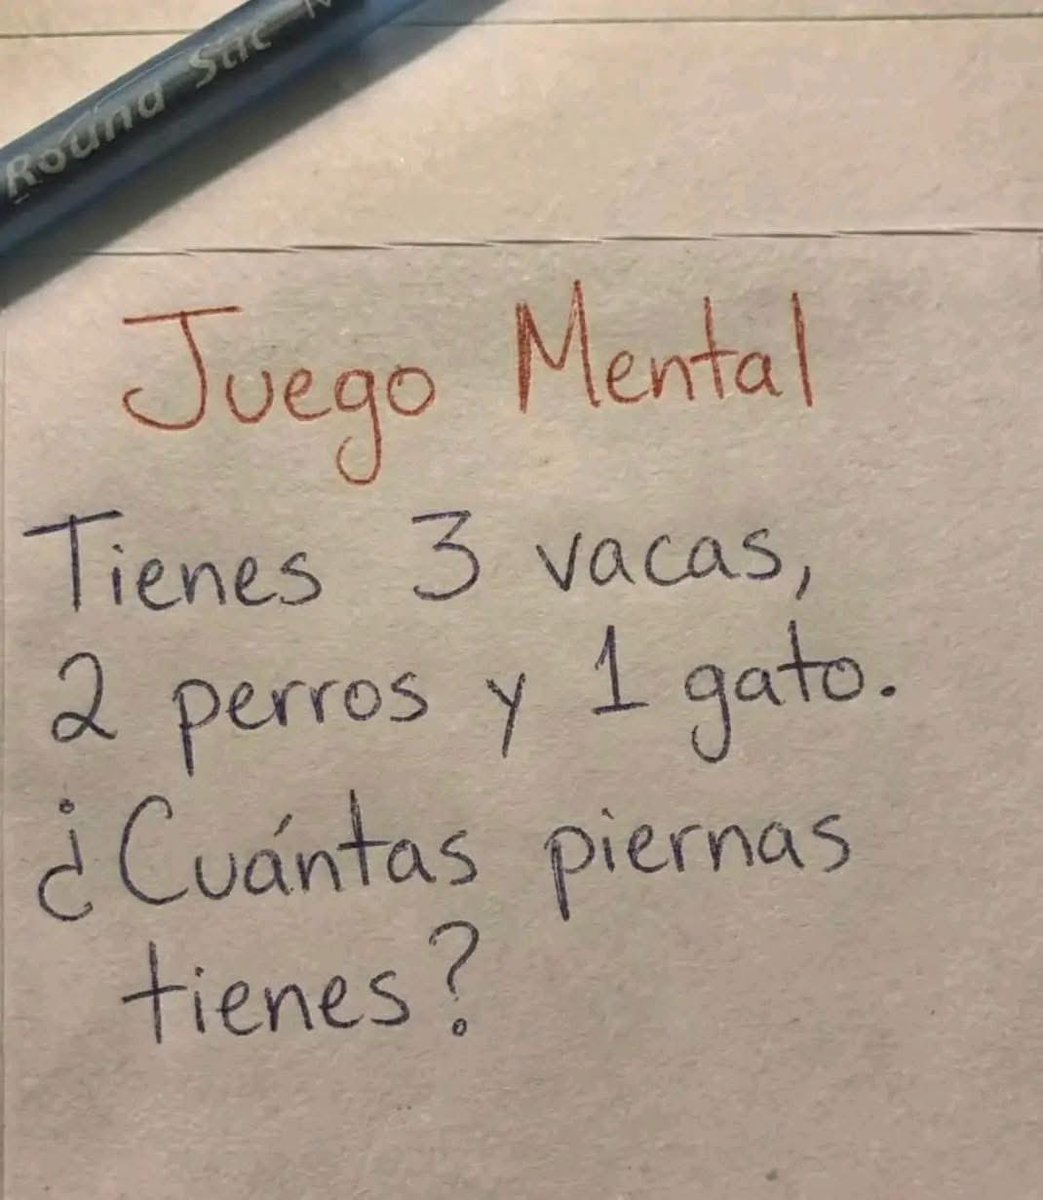 Round Stic M
Juego Mental
Tienes 3 vacas,
2 perros y 1 gato.
¿Cuántas piernas
tienes?